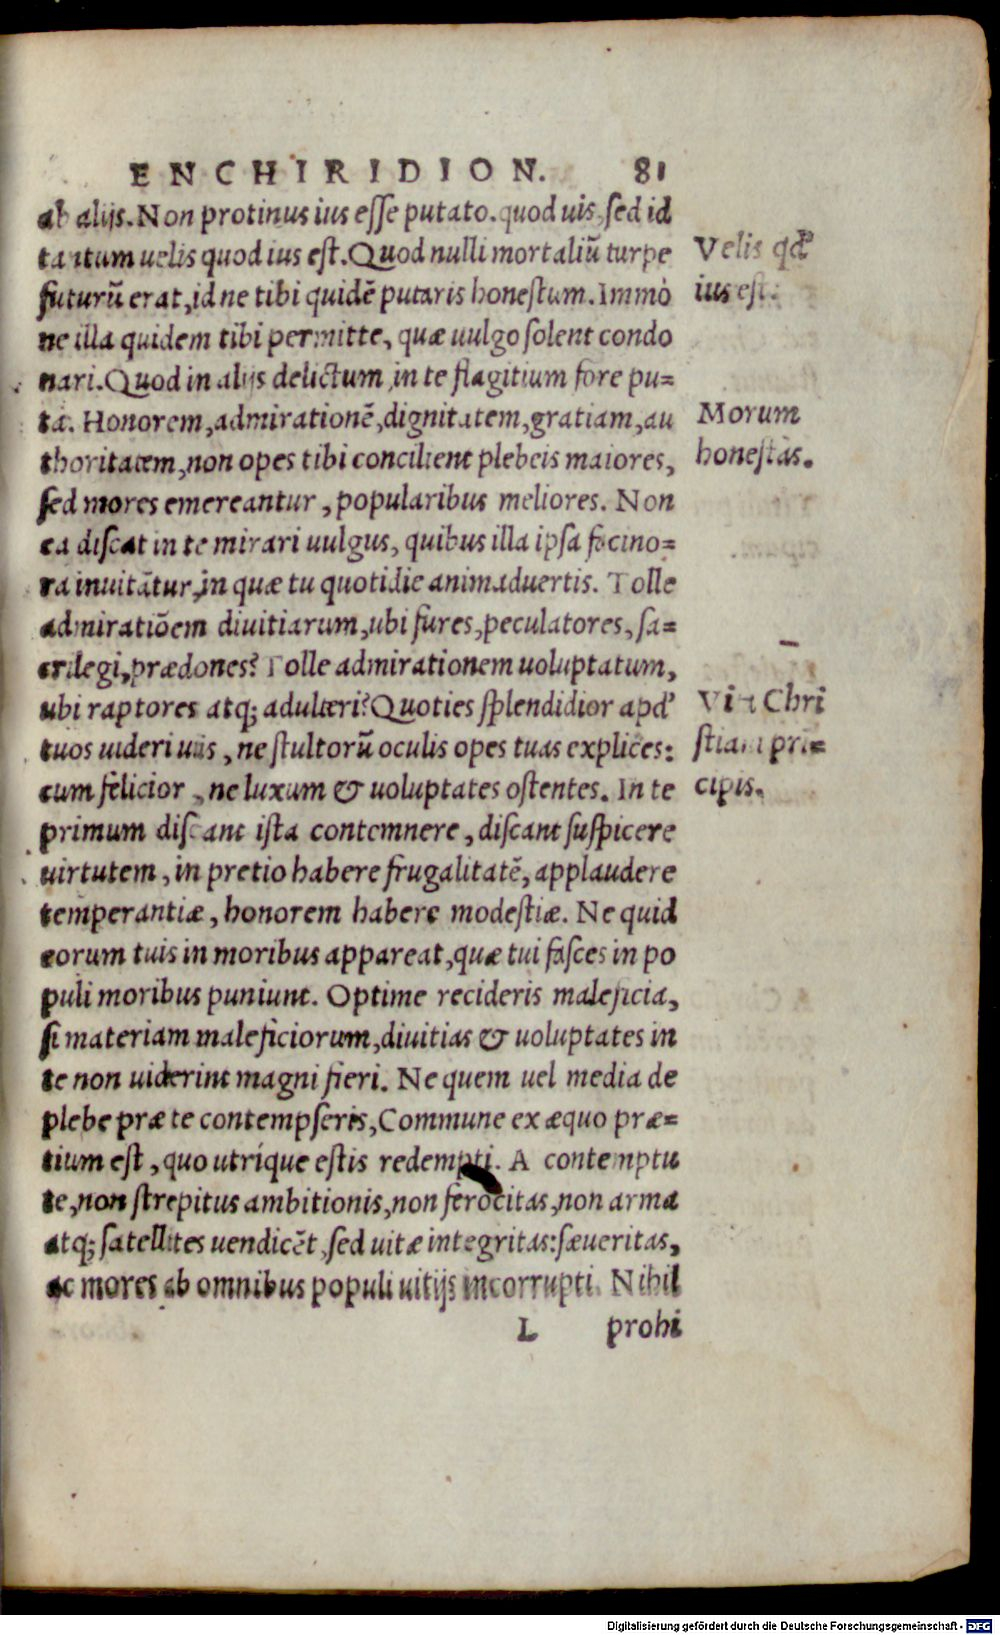 ENCHIRIDION. 81
ab alijs. Non protinus ius esse putato. quod uis, sed id
tantum uelis quod ius est. Quod nulli mortaliũ turpe
futurũ erat, id ne tibi quidẽ putaris honestum. Immò
ne illa quidem tibi permitte, quæ uulgo solent condo
nari. Quod in alijs delictum, in te flagitium fore pu=
ta. Honorem, admirationẽ, dignitatem, gratiam, au
thoritatem, non opes tibi concilient plebeis maiores,
sed mores emereantur, popularibus meliores. Non
ea discat in te mirari uulgus, quibus illa ipsa facino=
ra inuitãtur, in quæ tu quotidie animaduertis. Tolle
admiratiõem diuitiarum, ubi fures, peculatores, sa=
crilegi, prædones? Tolle admirationem uoluptatum,
ubi raptores atq; adulteri? Quoties splendidior apd'
tuos uideri uis, ne stultorũ oculis opes tuas explices:
cum felicior, ne luxum & uoluptates ostentes. In te
primum discant ista contemnere, discant suspicere
uirtutem, in pretio habere frugalitatẽ, applaudere
temperantiæ, honorem habere modestiæ. Ne quid
eorum tuis in moribus appareat, quæ tui fasces in po
puli moribus puniunt. Optime recideris maleficia,
si materiam maleficiorum, diuitias & uoluptates in
te non uiderint magni fieri. Ne quem uel media de
plebe præ te contempseris, Commune ex æquo præ=
tium est, quo utríque estis redempti. A contemptu
te, non strepitus ambitionis, non ferocitas, non arma
atq; satellites uendicẽt, sed uitæ integritas: sæueritas,
ac mores ab omnibus populi uitijs incorrupti. Nihil
L prohi
Velis qd'
ius est.
Morum
honestas.
Vita Chri
stiani prin=
cipis.
Digitalisierung gefördert durch die Deutsche Forschungsgemeinschaft - DFG